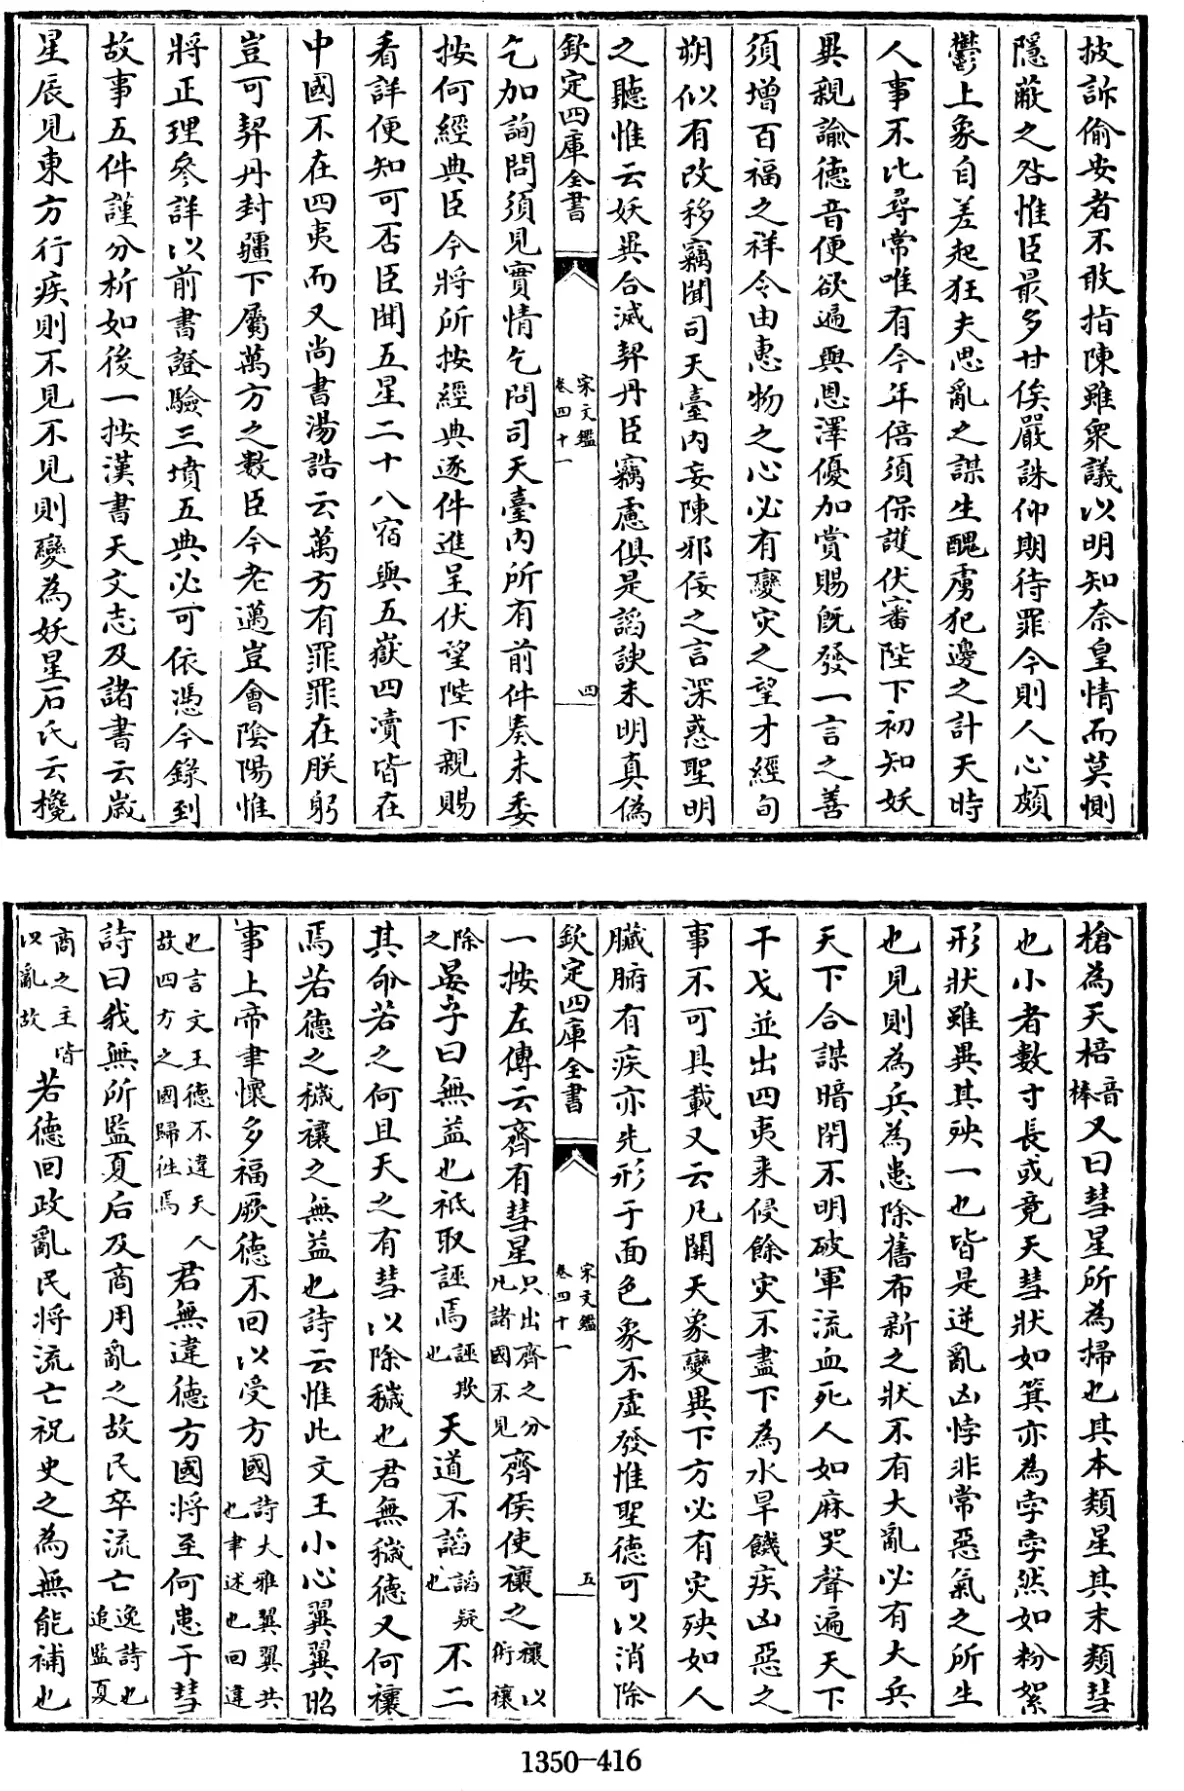 披訴偷安者不敢指陳雖衆議以明知奈皇情而莫惻
隱蔽之咎惟臣最多甘俟嚴誅仰期待罪今則人心頗
鬱上象自差起狂夫思亂之謀生醜虜犯邊之計天時
人事不比尋常唯有今年倍須保護伏審陛下初知妖
異親諭德音便欲遍與恩澤優加賞賜既發一言之善
須增百福之祥令由恵物之心必有變灾之望才經旬
朔似有改移竊聞司天臺内妄陳邪佞之言深惑聖明
之聽惟云妖異合滅契丹臣竊慮俱是謟諛未明真偽
欽定四庫全書
宋文鑑
卷四十一
四
乞加詢問須見實情乞問司天臺内所有前件奏未委
按何經典臣今將所按經典逐件進呈伏望陛下親賜
看詳便知可否臣聞五星二十八宿與五嶽四瀆皆在
中國不在四夷而又尚書湯誥云萬方有罪罪在朕躬
豈可契丹封疆下屬萬方之數臣今老邁豈會陰陽惟
將正理參詳以前書證驗三墳五典必可依憑今錄到
故事五件謹分析如後一按漢書天文志及諸書云歲
星辰見東方行疾則不見不見則變為妖星石氏云欃
槍為天棓音棒又曰彗星所為掃也其本類星其末類彗
也小者數寸長或竟天彗狀如箕亦為孛孛然如粉絮
形狀雖異其殃一也皆是逆亂凶悖非常惡氣之所生
也見則為兵為患除舊布新之狀不有大亂必有大兵
天下合謀暗閉不明破軍流血死人如麻哭聲遍天下
干戈並出四夷来侵餘灾不盡下為水旱饑疾凶惡之
事不可具載又云凡關天象變異下方必有灾殃如人
臟腑有疾亦先形于面色象不虚發惟聖德可以消除
欽定四庫全書
宋文鑑
卷四十一
五
一按左傳云齊有彗星只出齊之分凡諸國不見齊侯使禳之禳以術禳
除之晏子曰無益也祗取誣焉誣欺也天道不謟謟疑也不二
其命若之何且天之有彗以除穢也君無穢德又何禳
焉若德之穢禳之無益也詩云惟此文王小心翼翼昭
事上帝聿懷多福厥德不回以受方國詩大雅翼翼共也聿述也回違
也言文王德不違天人故四方之國歸往焉君無違德方國將至何患于彗
詩曰我無所監夏后及商用亂之故民卒流亡逸詩也追監夏
商之主皆以亂故若德回政亂民将流亡祝史之為無能補也
1350-416